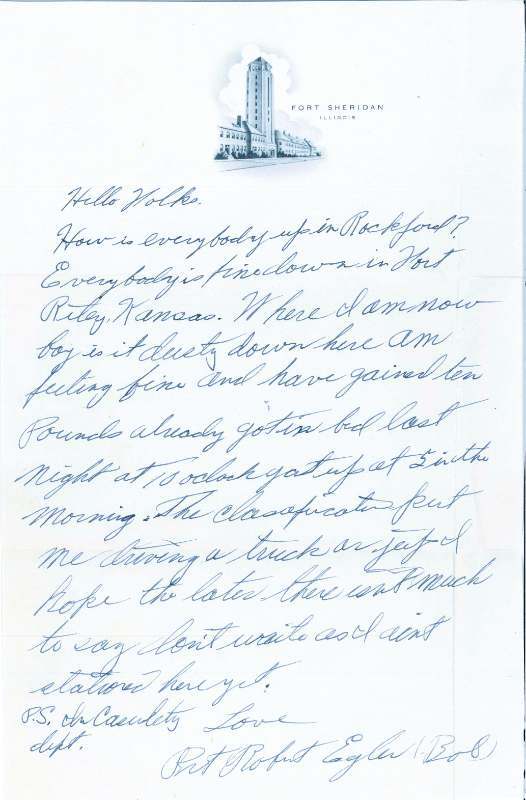 FORT SHERIDAN
ILLINOIS
Hello Folks.
How is everybody up in Rockford?
Everybody is fine down in Fort
Riley, Kansas. Where I am now
boy is it dusty down here am
feeling fine and have gained ten
Pounds already got in bed last
night at 10 oclock got up at 5 in the
Morning. The classificators put
me driving a truck or jeep I
hope the later there isnt much
to say don't write as I aint
stationed here yet.
P.S. In Casulety
dept.
Love
Pvt Robert Egler (Bob)